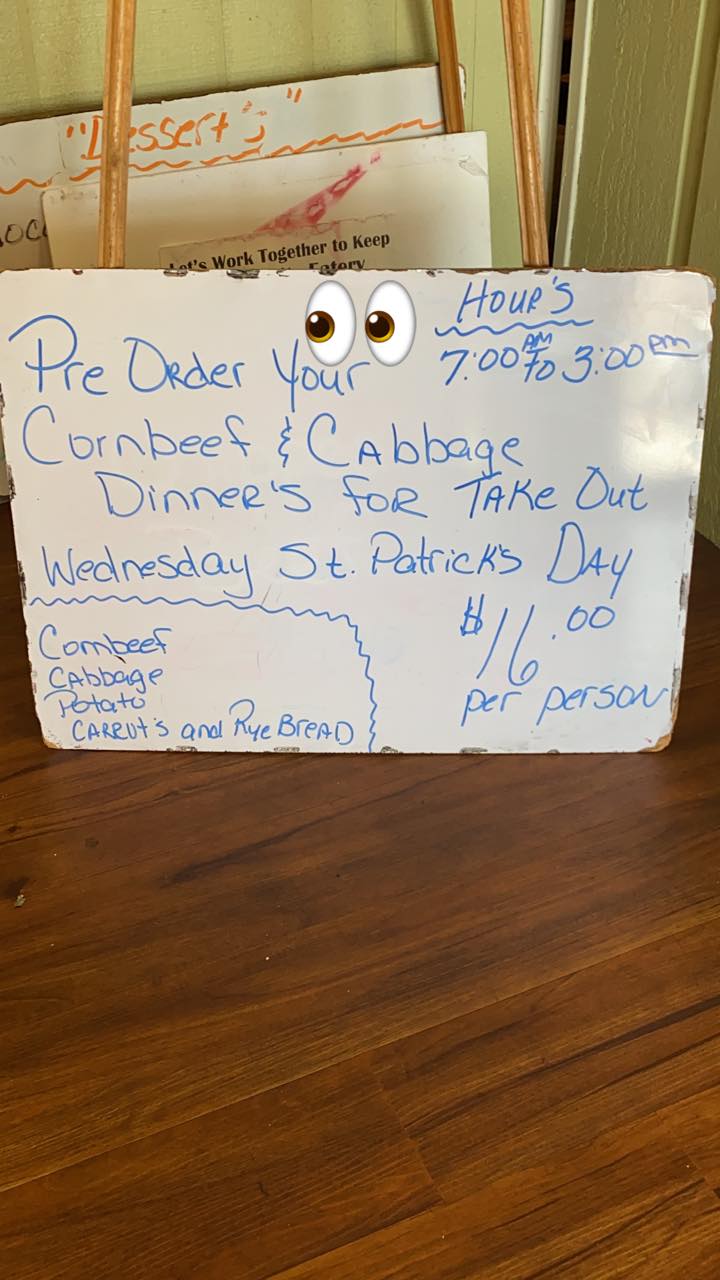 "Dessert's"
Let's Work Together to Keep
Eatery
Hour's
7:00 AM to 3:00 PM
Pre Order Your
Cornbeef & Cabbage
Dinner's for Take Out
Wednesday St. Patrick's Day
$16.00
per person
Cornbeef
Cabbage
Potato
Carrut's and Rye Bread